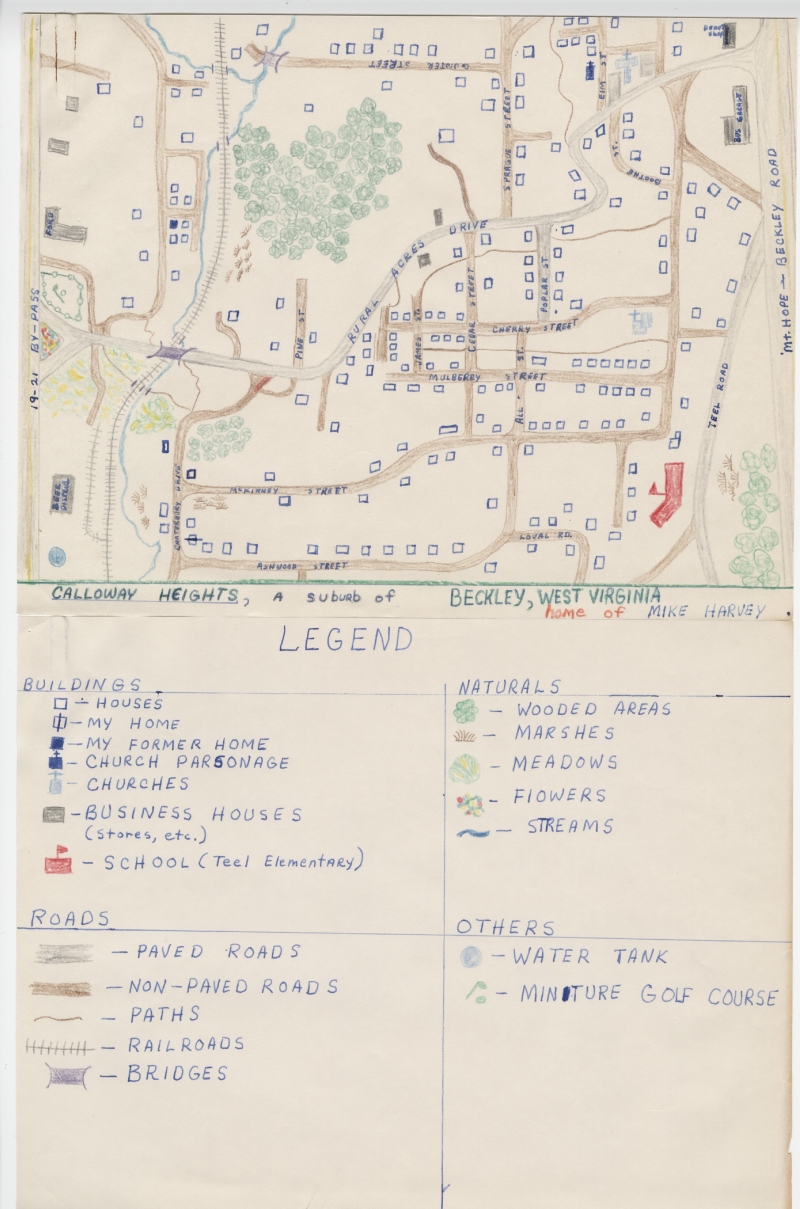 GUSTER STREET
ELM ST
BUS GARAGE
SPRAGUE STREET
BOOTHE ST.
FORD
RURAL ACRES DRIVE
POPLAR ST
CEDAR STREET
JAMES ST.
PINE ST
CHERRY STREET
MULBERRY STREET
ALL ST.
19-21 BY-PASS
MT. HOPE - BECKLEY ROAD
TEEL ROAD
McKINNEY STREET
CANTERBURY DRIVE
LOVAL RD.
ASHWOOD STREET
CALLOWAY HEIGHTS, A SUBURB of BECKLEY, WEST VIRGINIA
home of MIKE HARVEY.
LEGEND
BUILDINGS
- HOUSES
- MY HOME
- MY FORMER HOME
- CHURCH PARSONAGE
- CHURCHES
- BUSINESS HOUSES
(stores, etc.)
- SCHOOL (Teel Elementary)
ROADS
- PAVED ROADS
- NON-PAVED ROADS
- PATHS
- RAILROADS
- BRIDGES
NATURALS
- WOODED AREAS
- MARSHES
- MEADOWS
- FLOWERS
- STREAMS
OTHERS
- WATER TANK
- MINITURE GOLF COURSE